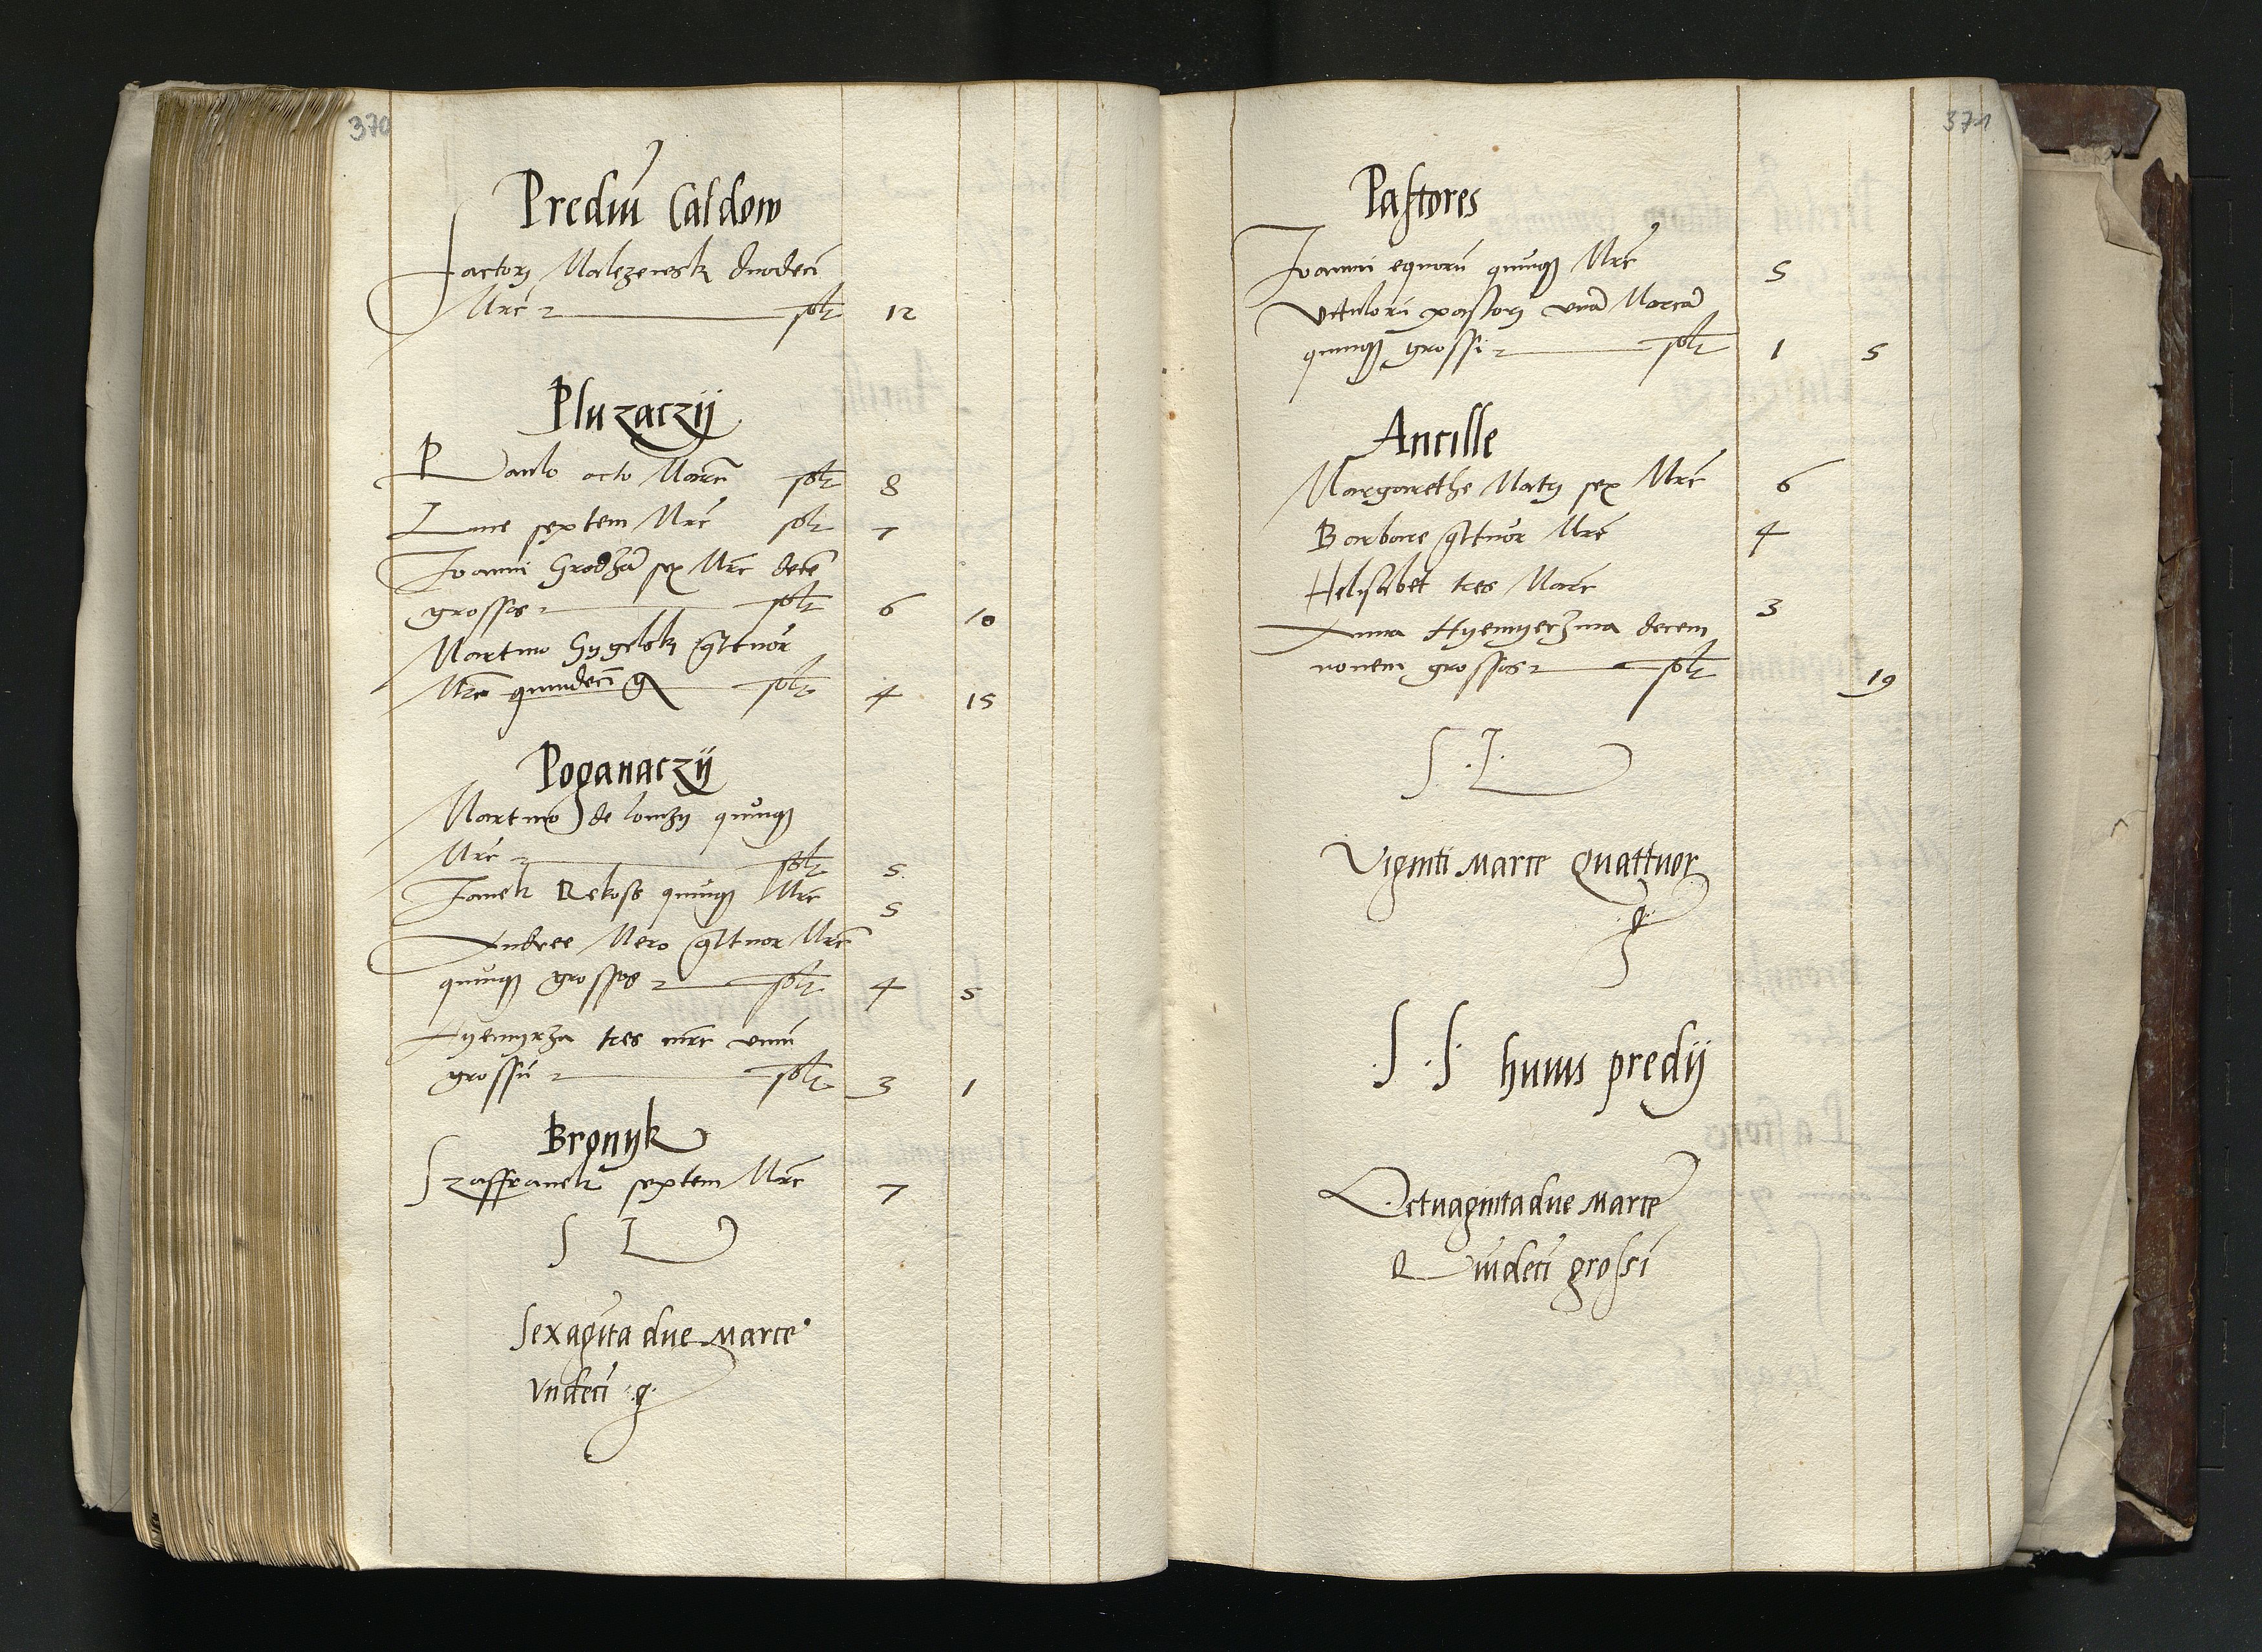 370
Prediū Caldow
Factorj Malezewsk duodeci
Mrc solt 12
Pluzaczÿ
Paulo octo Marc solt 8
Luce septem Mrc solt 7
Joanni sex Mrc dece
grossos solt 6 10
Martino Gygelsk q̄ttuor
Mrc quindeci g solt 4 15
Poganaczÿ
Martino de Lomzy quinq
Mrc solt 5
Janek Rekoss quinq Mrc 5
Andree Nero q̄ttuor Mrc
quinq grossos solt 4 5
Hyemyrza tres mrc unu
grossu solt 3 1
Bronyk
Szaffranek septem Mrc 7
S L
Sexagita due Marce
Vndeci .g.
371
Pastores
Joanni equoru quinq Mrc 5
Vituloru pastorj una Marca
quinq grossi solt 1 5
Ancille
Margarethe Matrj sex Mrc 6
Barbare q̄ttuor Mrc 4
Helisabet tres Marc 3
Anna Hyemyerzina decem
novem grossos solt 19
S .L.
Viginti Marce Quattuor
.g.
S .S. huius predij
Octuagintadue Marce
Quideci grossi